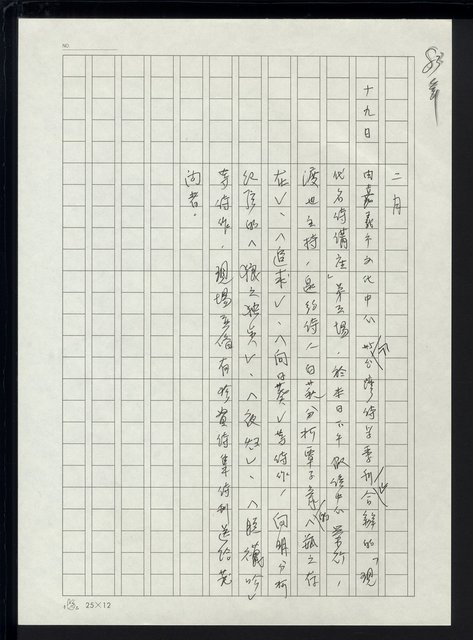 二月
十九日
由嘉義市文化中心與台灣詩學季刊合辦的「現
代名詩講座」第五場，於本日下午假該中心舉行，
渡也主持，邀約詩人白萩分析覃子豪的〈瓶之存
在〉、〈追求〉、〈向日葵〉等詩作，向明分析
紀弦的〈狼之獨步〉、〈彼時〉、〈脫襪吟〉
等詩作，現場並備有珍貴詩集詩刊送給
問者。
NO.
25×12